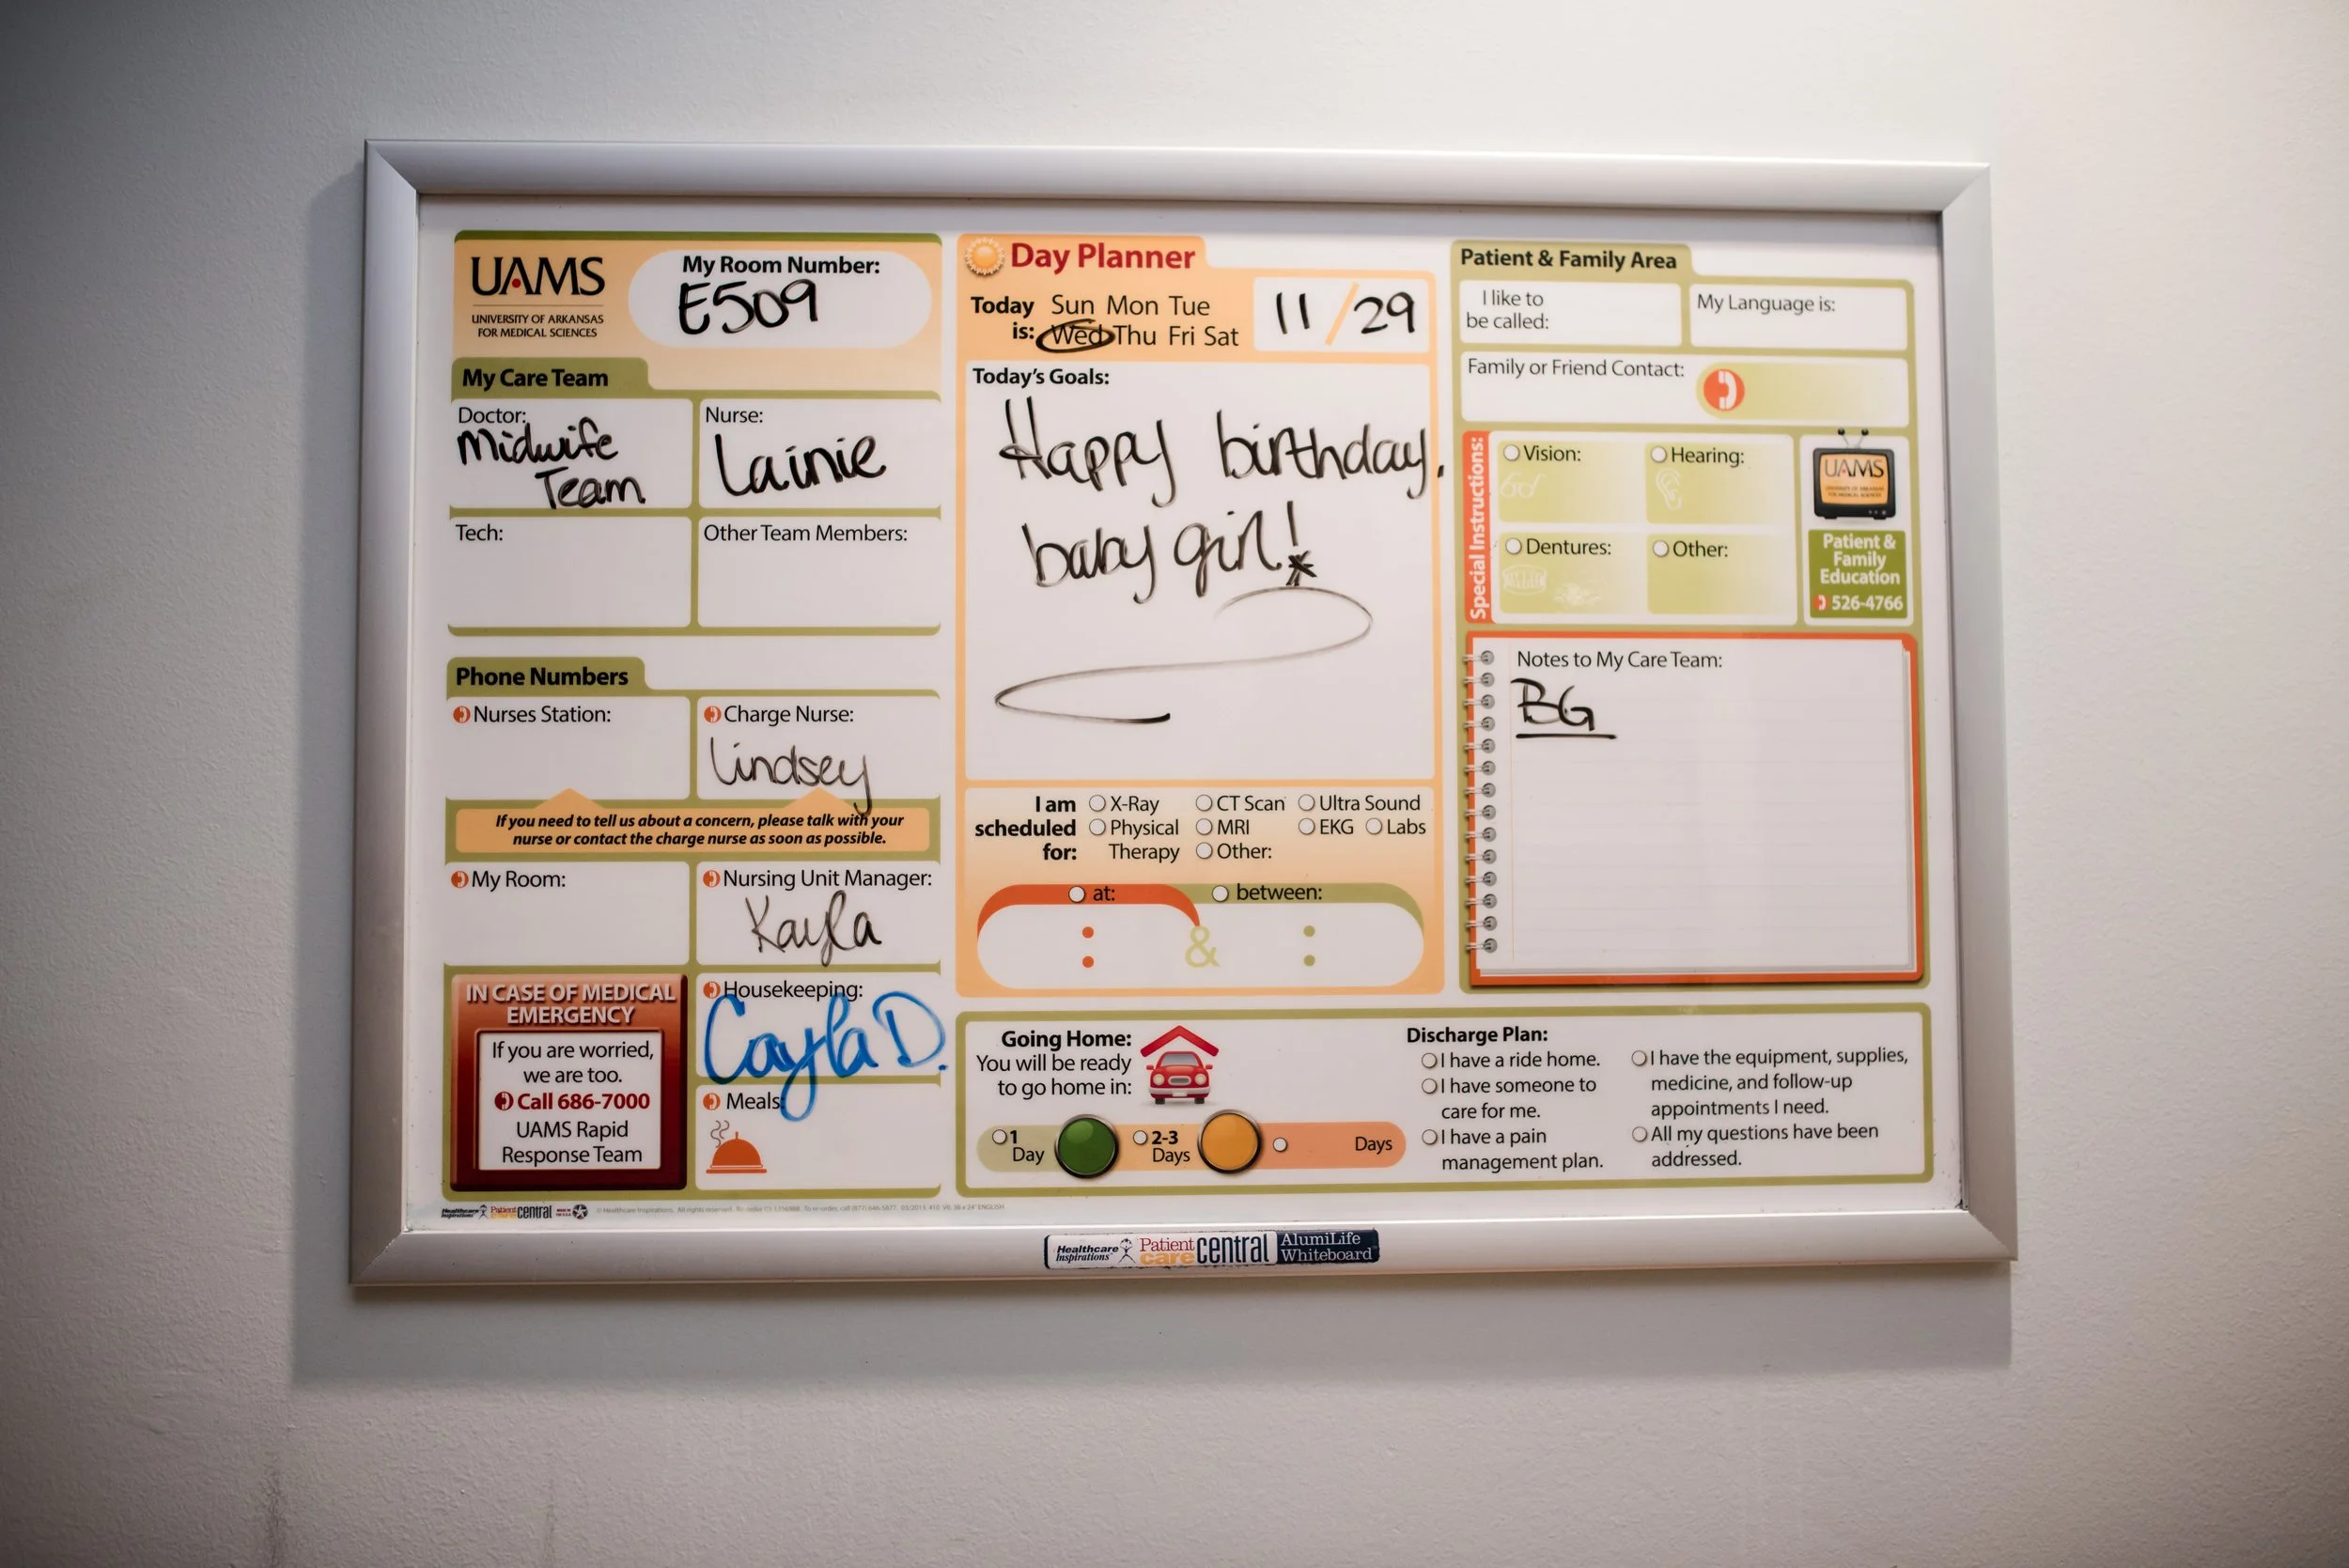 UAMS
UNIVERSITY OF ARKANSAS
FOR MEDICAL SCIENCES
My Room Number:
E509
My Care Team
Doctor:
Midwife
Team
Nurse:
Lainie
Tech:
Other Team Members:
Phone Numbers
Nurses Station:
Charge Nurse:
Lindsey
If you need to tell us about a concern, please talk with your
nurse or contact the charge nurse as soon as possible.
My Room:
Nursing Unit Manager:
Kayla
IN CASE OF MEDICAL
EMERGENCY
If you are worried,
we are too.
Call 686-7000
UAMS Rapid
Response Team
Housekeeping:
Cayla D.
Meals:
Day Planner
Today Sun Mon Tue
is: Wed Thu Fri Sat
11/29
Today's Goals:
Happy birthday,
baby girl!
I am X-Ray CT Scan Ultra Sound
scheduled Physical MRI EKG Labs
for: Therapy Other:
at: between:
: & :
Patient & Family Area
I like to
be called:
My Language is:
Family or Friend Contact:
Special Instructions:
Vision:
Hearing:
Dentures:
Other:
UAMS
Patient &
Family
Education
526-4766
Notes to My Care Team:
BG
Going Home:
You will be ready
to go home in:
1
Day
2-3
Days
Days
Discharge Plan:
I have a ride home.
I have someone to
care for me.
I have a pain
management plan.
I have the equipment, supplies,
medicine, and follow-up
appointments I need.
All my questions have been
addressed.
Healthcare
Inspirations
Patient
care central
Healthcare
Inspirations
Patient
care central
AlumiLife
Whiteboard